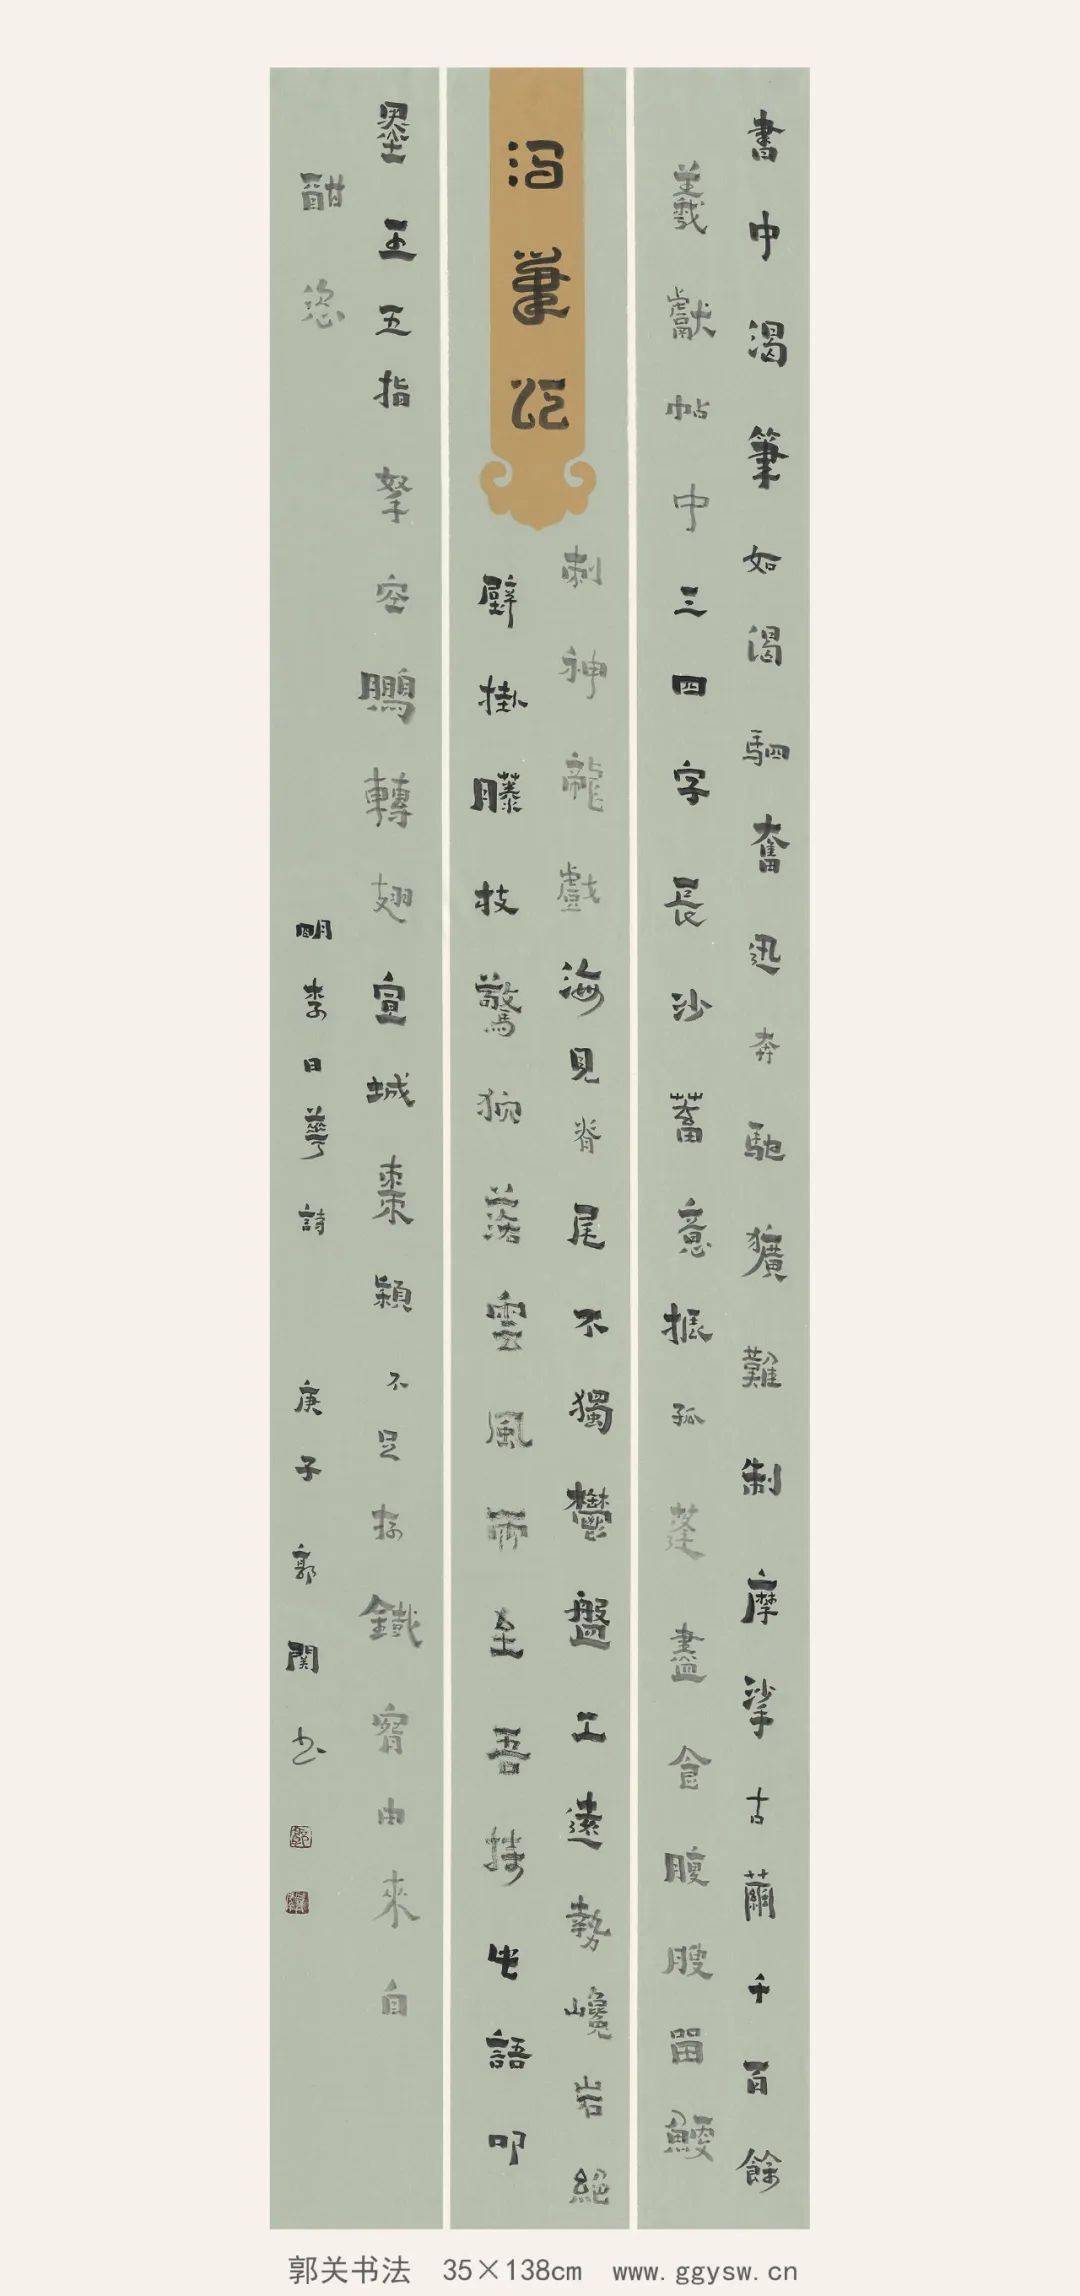 書中渴筆如渴駟奮迅奔馳獷難制摩挲古繭千百餘
羲獻帖中三四字長沙蓄意振孤蓬盡食腹腴留鯁
刺神龍戲海見脊尾不獨鬱盤工遠勢巉岩絕
壁掛藤枝驚狖落雲風雨至吾持此語叩
墨王五指拏空鵬轉翅宣城棗穎不足存鐵宵由來自
酣恣
明李日華詩 庚子 郭關书
沼筆
郭关书法 35×138cm www.ggysw.cn